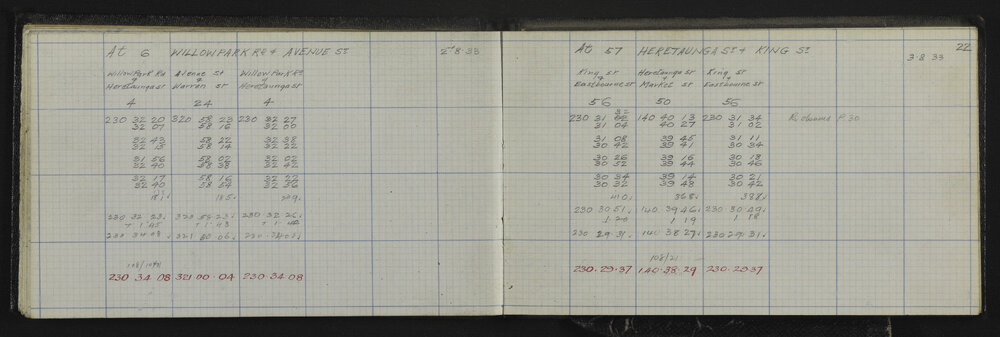 At 6 WILLOWPARK Rd & AVENUE St 2.8.33
Willow Park Rd Avenue St Willow Park Rd
& & &
Heretaunga St Warren St Heretaunga St
4 24 4
230 32 20 320 58 23 230 32 27
32 07 58 16 32 00
32 43 58 22 32 38
32 13 58 14 32 22
31 56 58 02 32 02
32 40 58 38 32 42
32 17 58 16 32 22
32 40 58 54 32 56
185
230 32 23 320 58 23 230 32 26
+ 1 45 + 1 43
230 34 08 321 00 06 230 34 08
230 . 34 . 08 321 . 00 . 04 230 . 34 . 08
22
At 57 HERETAUNGA St & KING St
3.8.33
King St Heretaunga St King St
& & &
Eastbourne St Market St Eastbourne St
56 50 56
32
230 31 140 40 13 230 31 34 Re observed P 30
31 04 40 27 31 02
31 08 39 45 31 11
30 42 39 41 30 34
30 26 39 16 30 18
30 52 39 44 30 46
30 34 39 14 30 21
30 32 39 48 30 42
410 368 388
230 30 51 140 39 46 230 30 49
1 20 1 19 1 18
230 29 31 140 38 27 230 29 31
108/21
230 . 29 . 37 140 . 38 . 29 230 . 29 37